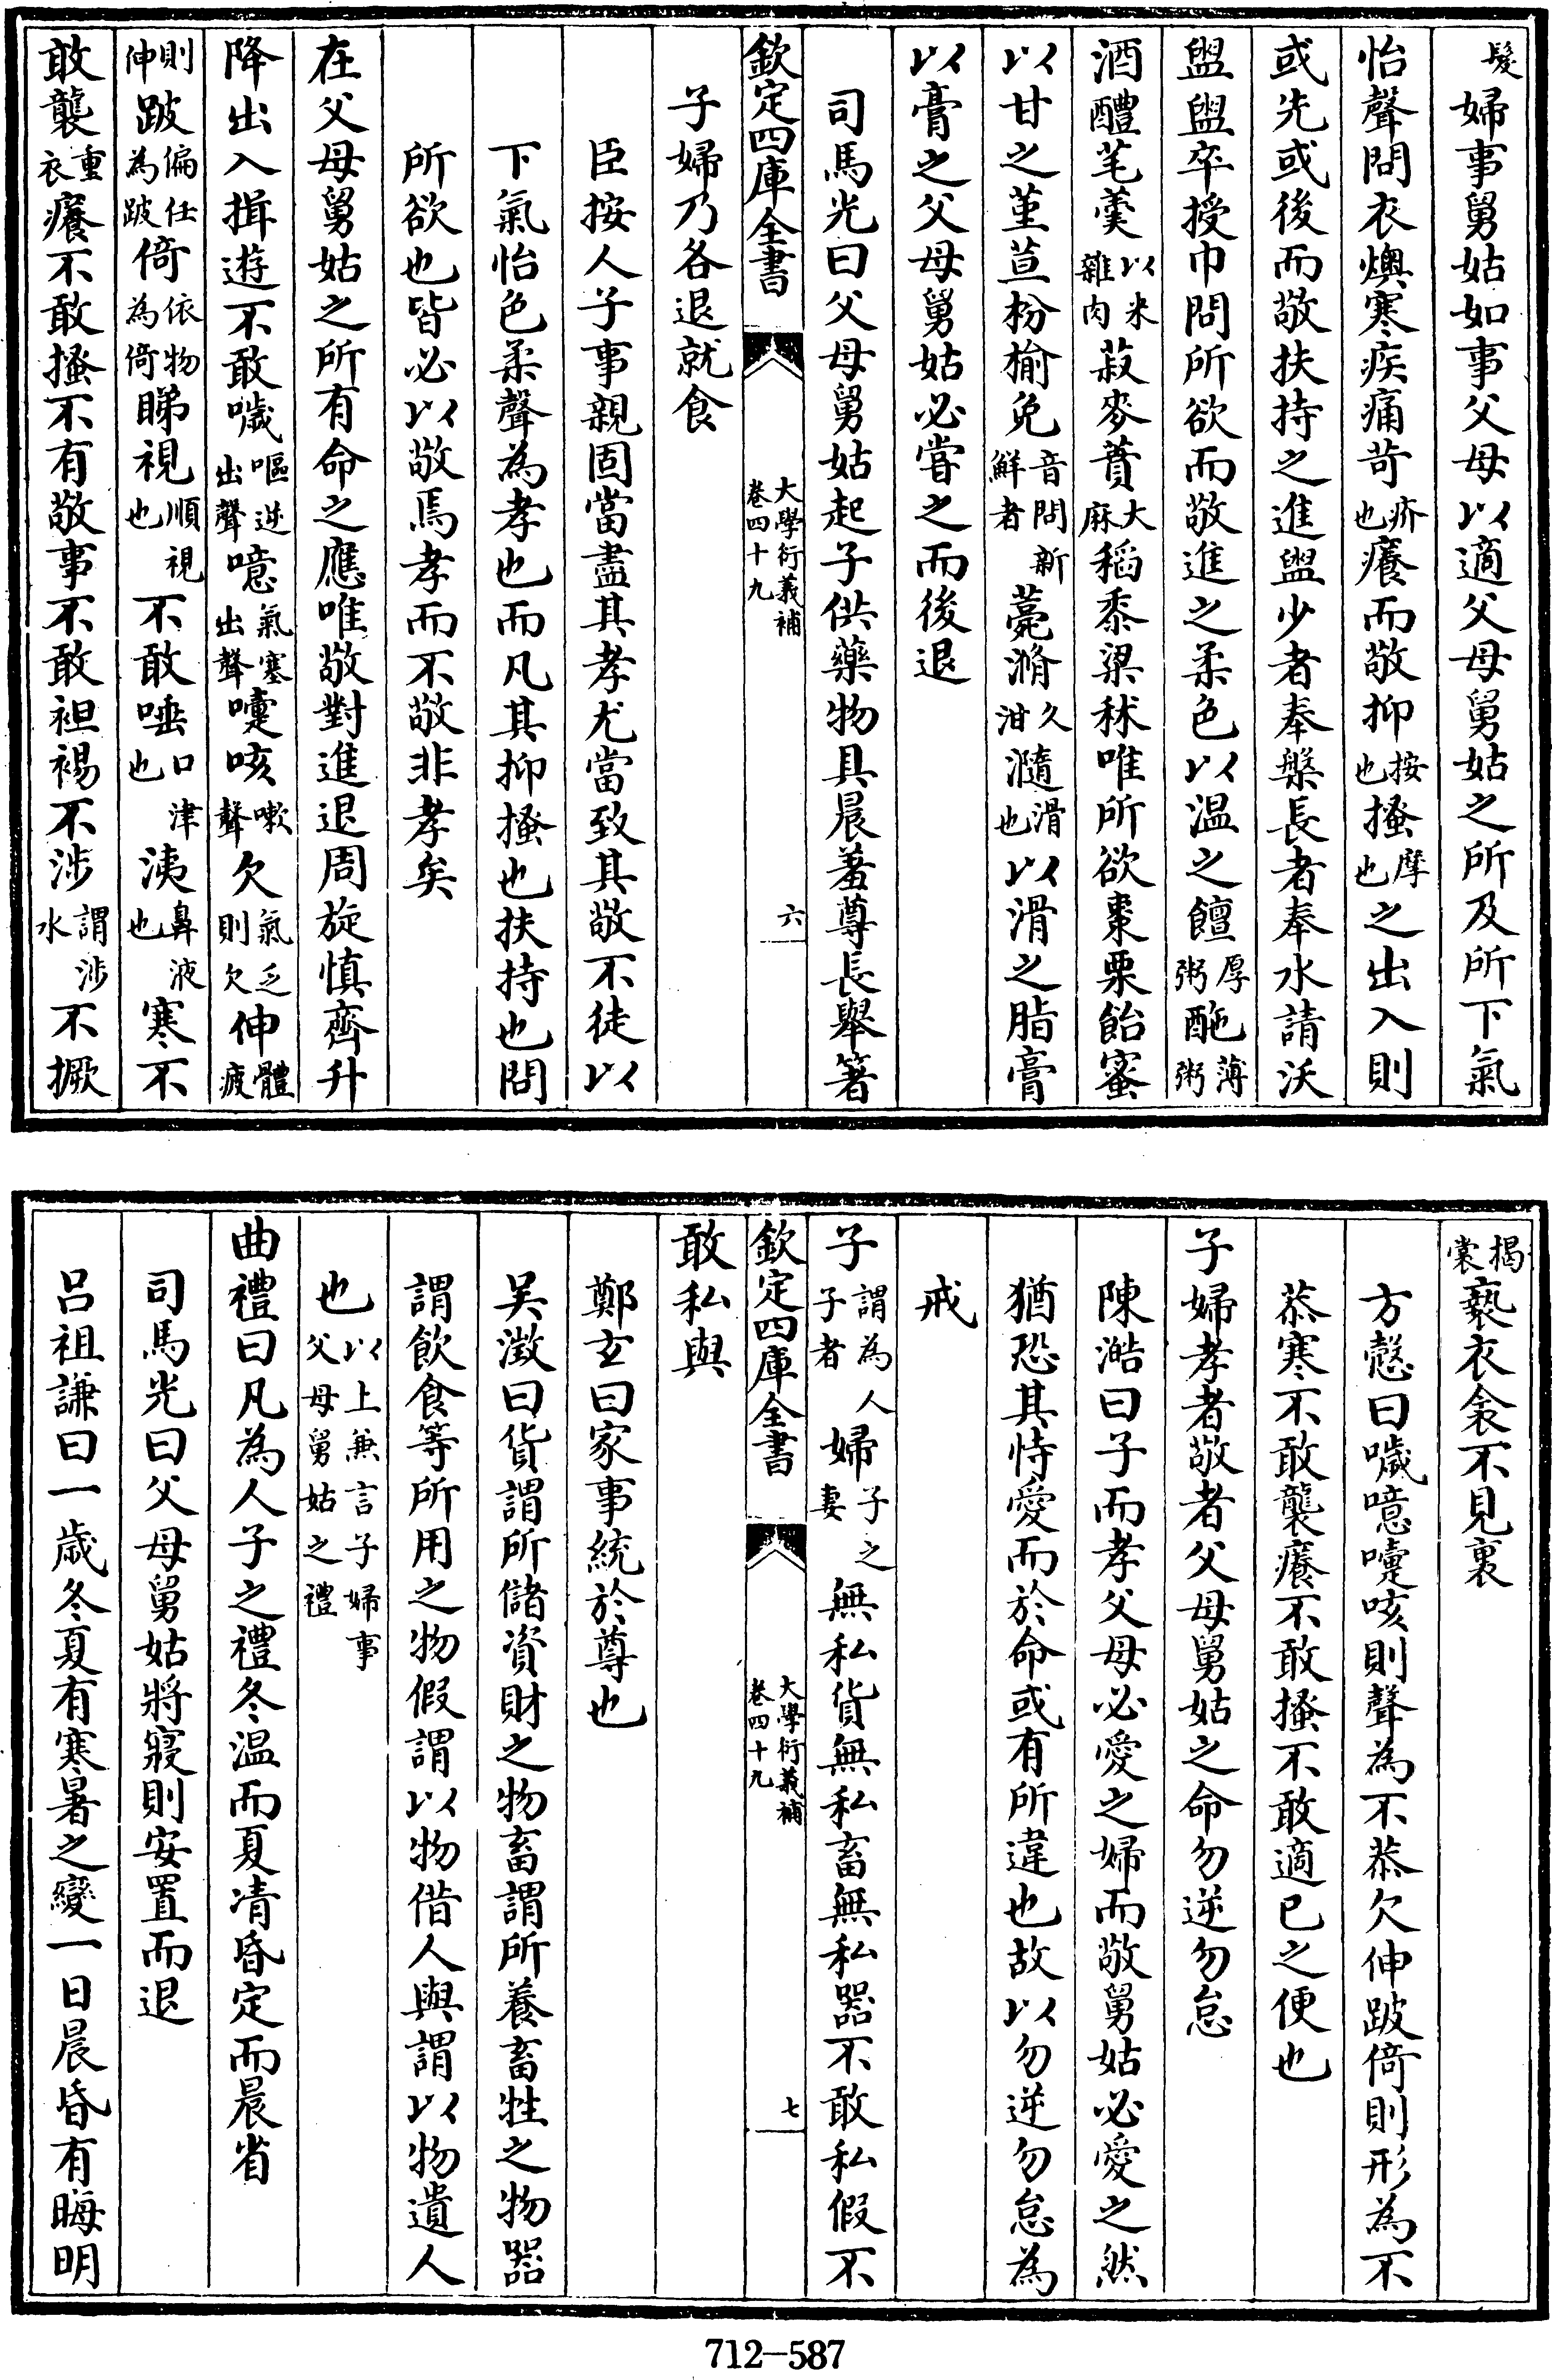 髮婦事舅姑如事父母以適父母舅姑之所及所下氣
怡聲問衣燠寒疾痛苛疥也癢而敬抑按也搔摩也之出入則
或先或後而敬扶持之進盥少者奉槃長者奉水請沃
盥盥卒授巾問所欲而敬進之柔色以温之饘厚粥酏薄粥
酒醴芼羹以米雜肉菽麥蕡大麻稻黍粱秫唯所欲棗栗飴蜜
以甘之菫荁枌榆免音問新鮮者薧滫久泔瀡滑也以滑之脂膏
以膏之父母舅姑必嘗之而後退
司馬光曰父母舅姑起子供藥物具晨羞尊長舉箸
欽定四庫全書
大學衍義補
卷四十九
六
子婦乃各退就食
臣按人子事親固當盡其孝尤當致其敬不徒以
下氣怡色柔聲為孝也而凡其抑搔也扶持也問
所欲也皆必以敬焉孝而不敬非孝矣
在父母舅姑之所有命之應唯敬對進退周旋慎齊升
降出入揖遊不敢噦嘔逆出聲噫氣塞出聲嚏咳嗽聲欠氣乏則欠伸體疲
則伸跛偏任為跛倚依物為倚睇視順視也不敢唾口津也洟鼻液也寒不
敢襲重衣癢不敢搔不有敬事不敢袒裼不涉謂涉水不撅
揭裳褻衣衾不見裏
方慤曰噦噫嚏咳則聲為不恭欠伸跛倚則形為不
恭寒不敢襲癢不敢搔不敢適已之便也
子婦孝者敬者父母舅姑之命勿逆勿怠
陳澔曰子而孝父母必愛之婦而敬舅姑必愛之然
猶恐其恃愛而於命或有所違也故以勿逆勿怠為
戒
子謂為人子者婦子之妻無私貨無私畜無私器不敢私假不
欽定四庫全書
大學衍義補
卷四十九
七
敢私與
鄭玄曰家事統於尊也
吴澂曰貨謂所儲資財之物畜謂所養畜牲之物器
謂飲食等所用之物假謂以物借人與謂以物遺人
也以上兼言子婦事父母舅姑之禮
曲禮曰凡為人子之禮冬温而夏凊昏定而晨省
司馬光曰父母舅姑將寢則安置而退
吕祖謙曰一歲冬夏有寒暑之變一日晨昏有晦明
712—587